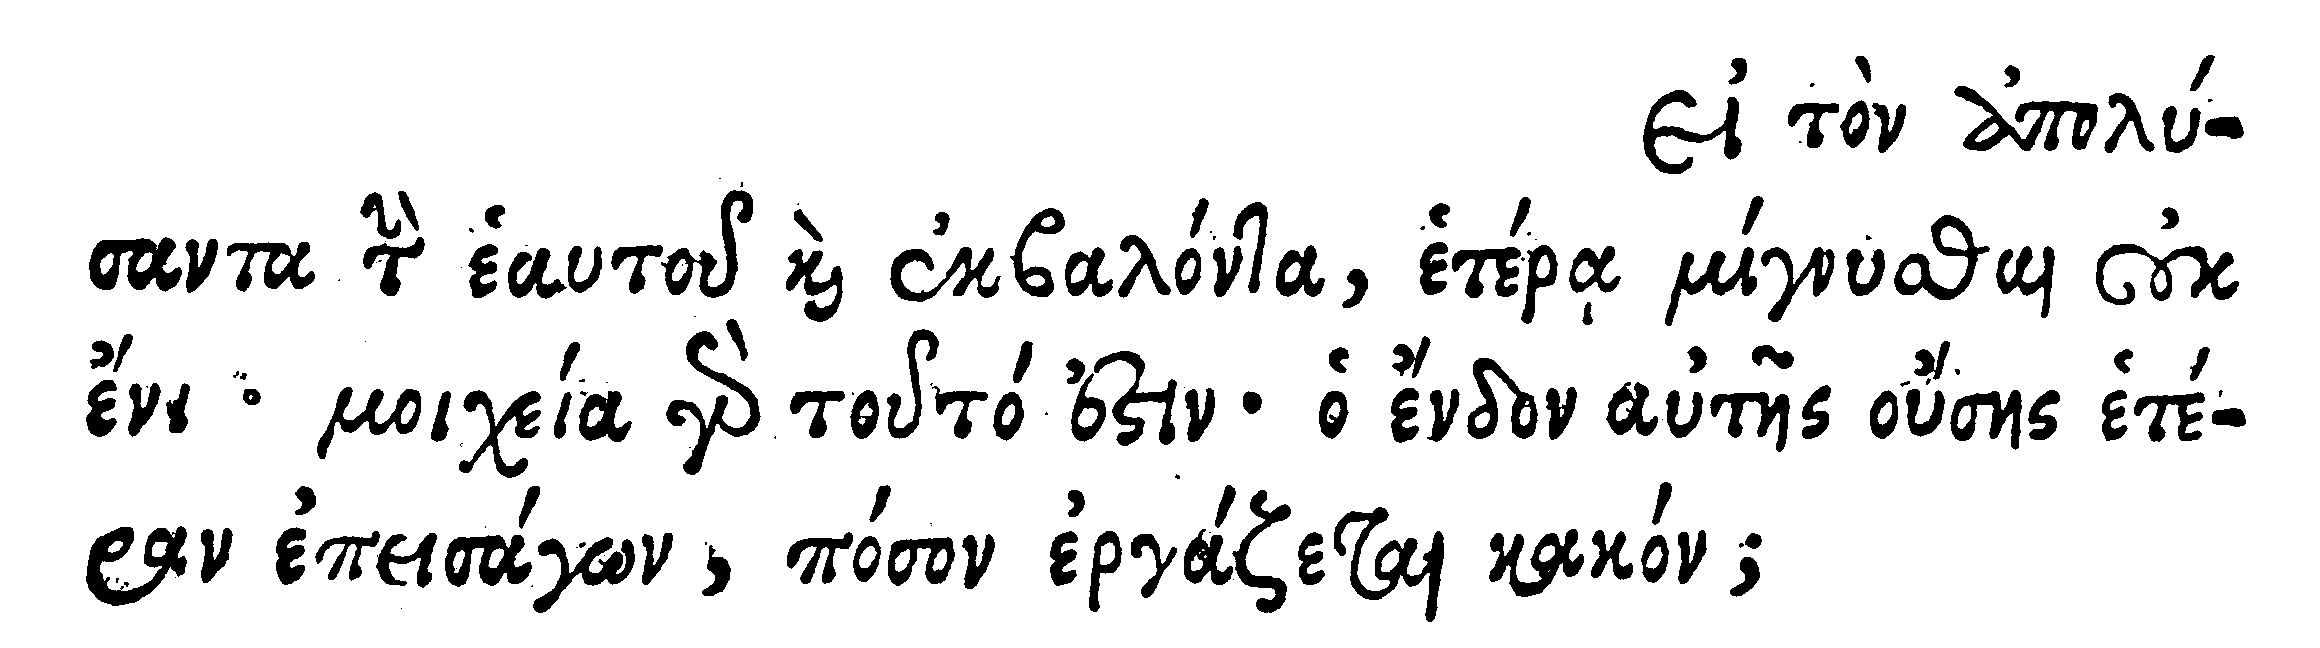 Εἰ τὸν ἀπολύ-
σαντα τὴν ἑαυτοῦ καὶ ἐκβαλόντα, ἑτέρᾳ μίγνυσθαι οὐκ
ἔνι· μοιχεία γὰρ τοῦτό ἐστιν· ὁ ἔνδον αὐτῆς οὔσης ἑτέ-
ραν ἐπεισάγων, πόσον ἐργάζεται κακόν;